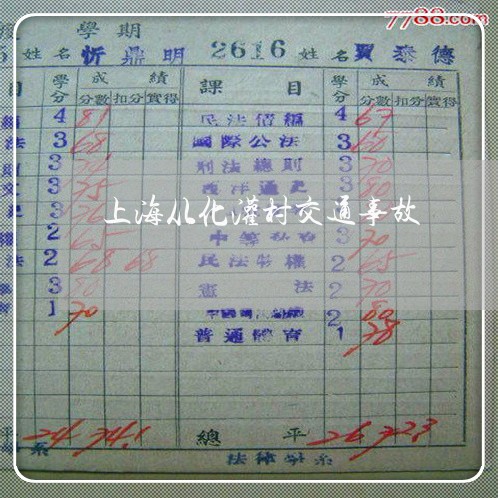 7788.com
學期
5 姓名 忻鼎明 2616 姓名 賈泰德
目 學分 成績 分數 扣分 實得 課目 學分 成績 分數 扣分 實得
4 81 民法債編 4 67
法 3 68 國際公法 3 60
3 刑法總則 3 70
3 75 西洋通史 3 80
上海从化灌村交通事故
2 65 3 70
法 2 68 68 民法物權 2 65
3 80 憲法 2 70
1 70 2 80
普通體育 1 78
平 24 74.1 總平 26 72.3
系 法律學系